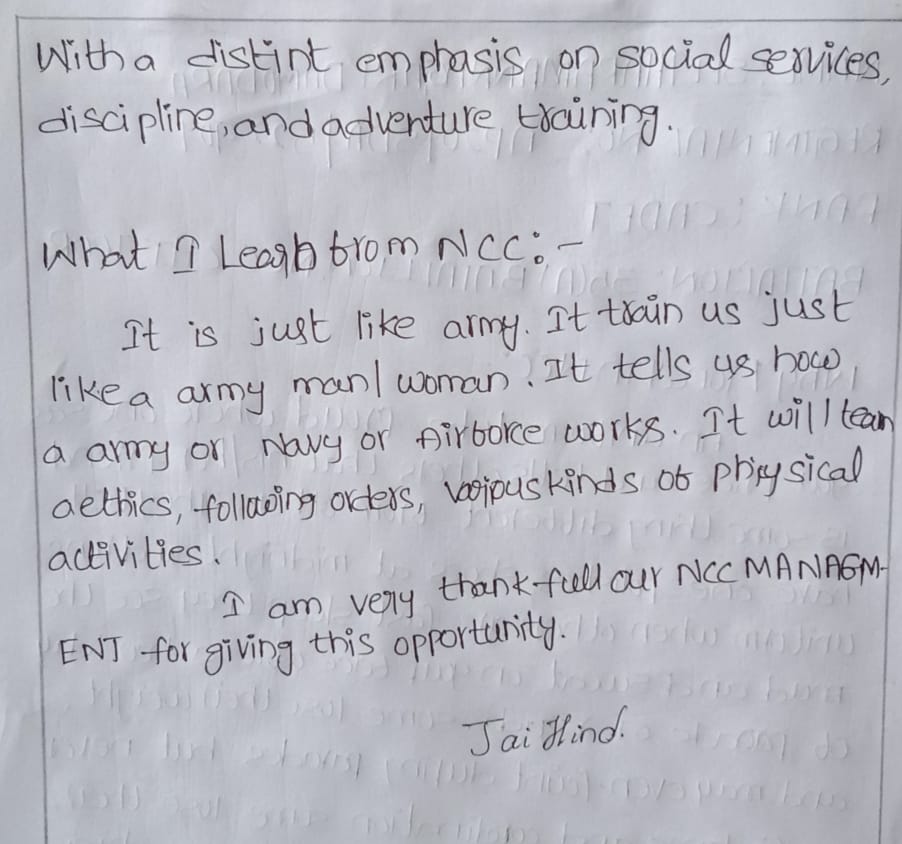 With a distint emphasis on social services,
discipline, and adventure training.
What I Learn from NCC:-
It is just like army. It train us just
like a army man/woman. It tells us how
a army or Navy or Airforce works. It will tean
aethics, following orders, various kinds of physical
activities.
I am very thank-full our NCC MANAGM-
ENT for giving this opportunity.
Jai Hind.